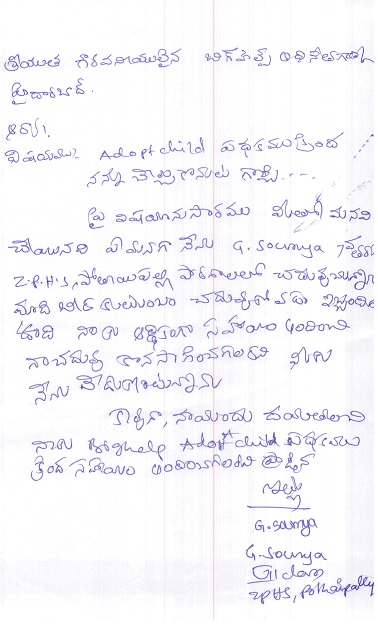 శ్రీయుత గౌరవనీయులైన బిగ్‌హెల్ప్ అధినేతగారికి
హైదరాబాద్.
ఆర్యా!
విషయము: Adopt child పథకము క్రింద
నన్ను చేర్చుకొనుట గూర్చి....
పై విషయానుసారముగా మీతో మనవి
చేయునది ఏమనగా నేను G. Soumya 7వ తరగతి
Z.P.H.S, పోతాయిపల్లి పాఠశాలలో చదువుచున్నాను
మాది బీద కుటుంబం చదువుకోవడం ఇబ్బందిగా
ఉంది నాకు ఆర్థికంగా సహాయం అందించి
నా చదువు కొనసాగించగలరని మీకు
నేను వేడుకుంటున్నాను
కావున, నాయందు దయతలచి
నాకు Bighelp Adopt child పథకము
క్రింద సహాయం అందించగలరని ప్రార్థన
ఇట్లు
G. Soumya
G. Soumya
VII class
ZPHS, Pothaipally